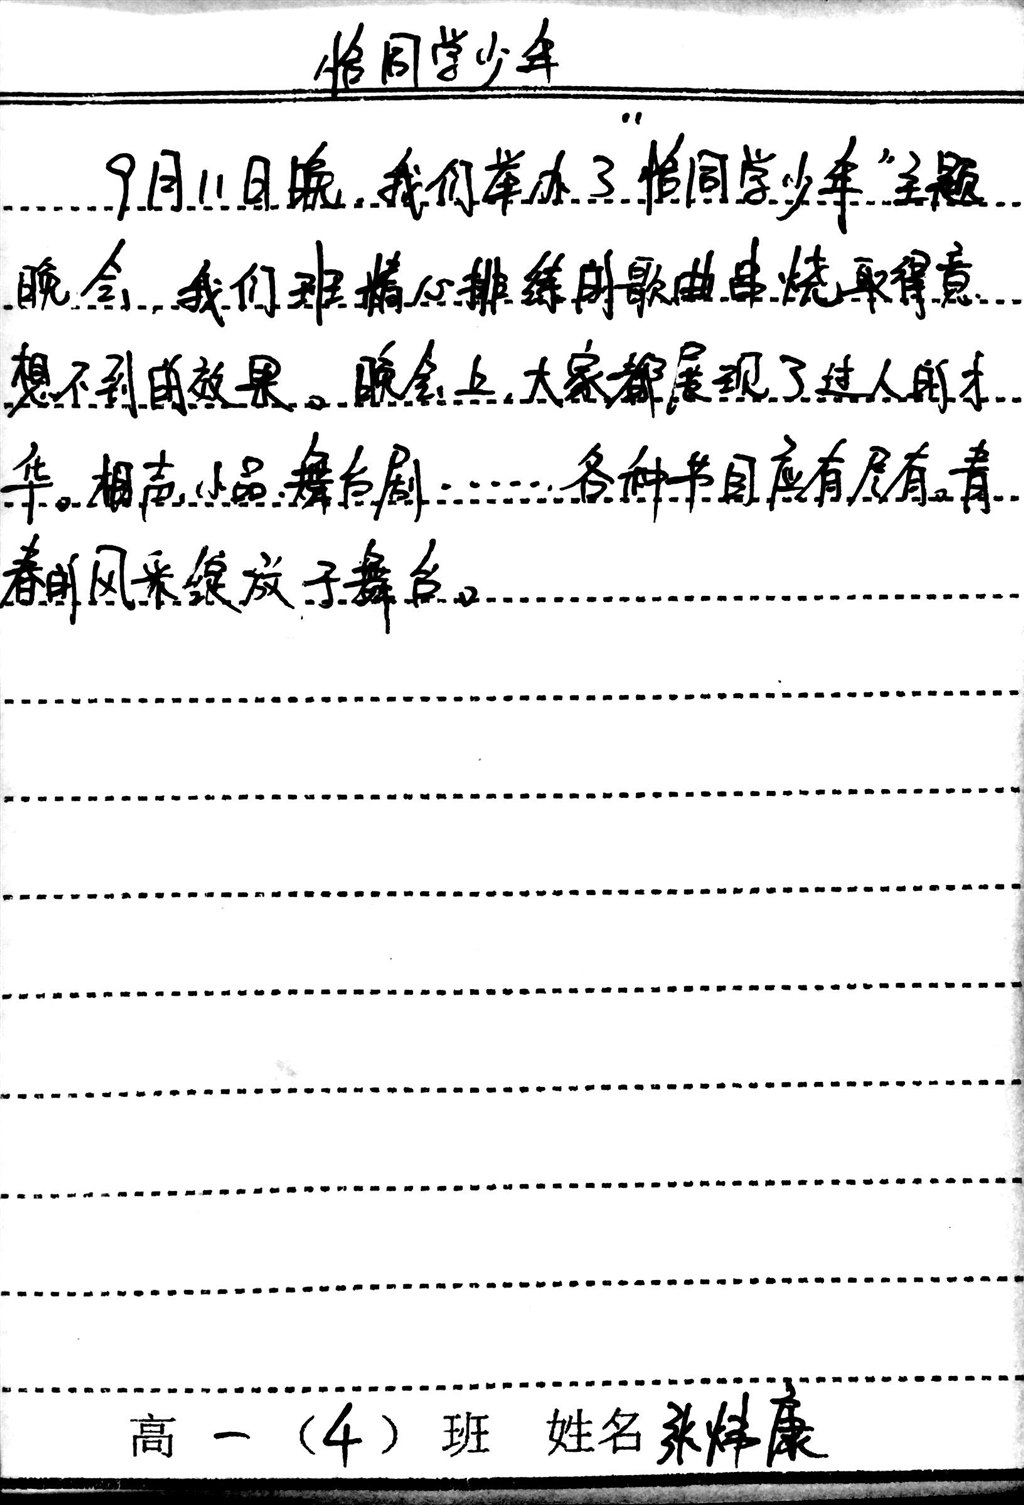 恰同学少年
9月11日晚，我们举办了“恰同学少年”主题
晚会，我们班精心排练的歌曲串烧取得意
想不到的效果。晚会上，大家都展现了过人的才
华。相声、小品、舞台剧……各种节目应有尽有。青
春的风采绽放于舞台。
高一（4）班 姓名张炜康